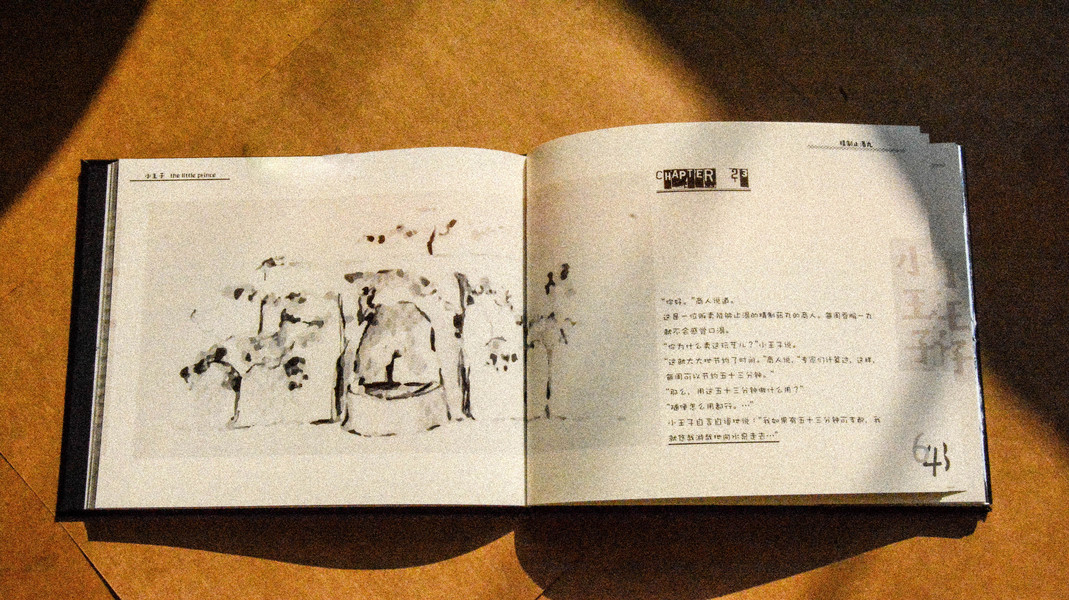 小王子 the little prince
精制止渴丸
CHAPTER 23
“你好。”商人说道。
这是一位贩卖能够止渴的精制药丸的商人。每周吞服一丸
就不会感觉口渴。
“你为什么卖这玩艺儿？”小王子说。
“这就大大地节约了时间。”商人说，“专家们计算过，这样，
每周可以节约五十三分钟。”
“那么，用这五十三分钟做什么用？”
“随便怎么用都行。…”
小王子自言自语地说：“我如果有五十三分钟可支配，我
就悠哉游哉地向水泉走去…”
小王子